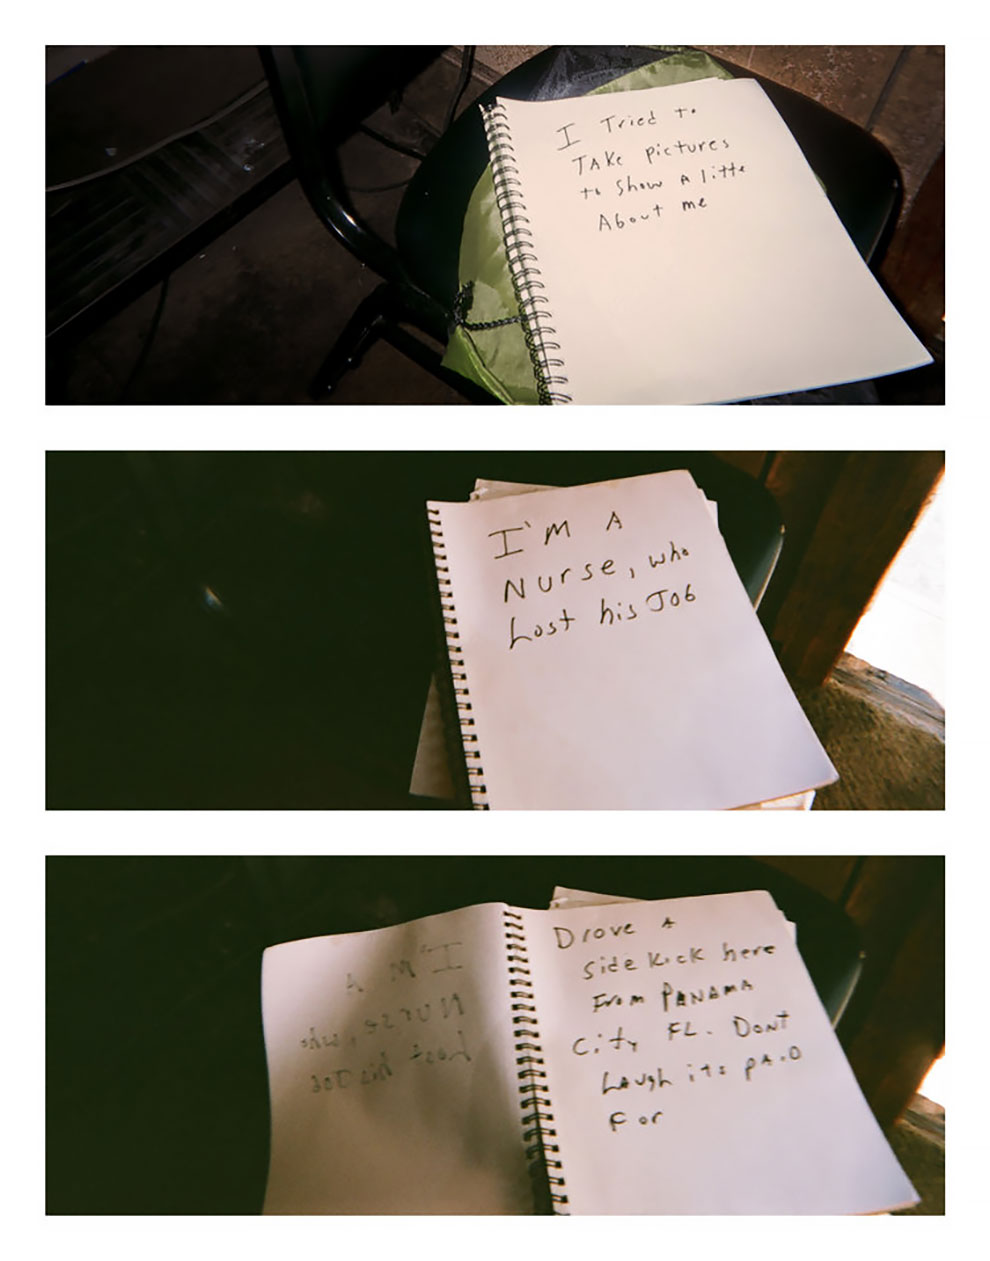 I Tried to
TAKe pictures
to Show A litte
About me
I'M A
Nurse, who
Lost his Job
Drove A
side Kick here
From PANAMA
City FL. Dont
LAugh its pAiD
For
I'M A
Nurse, who
Lost his Job